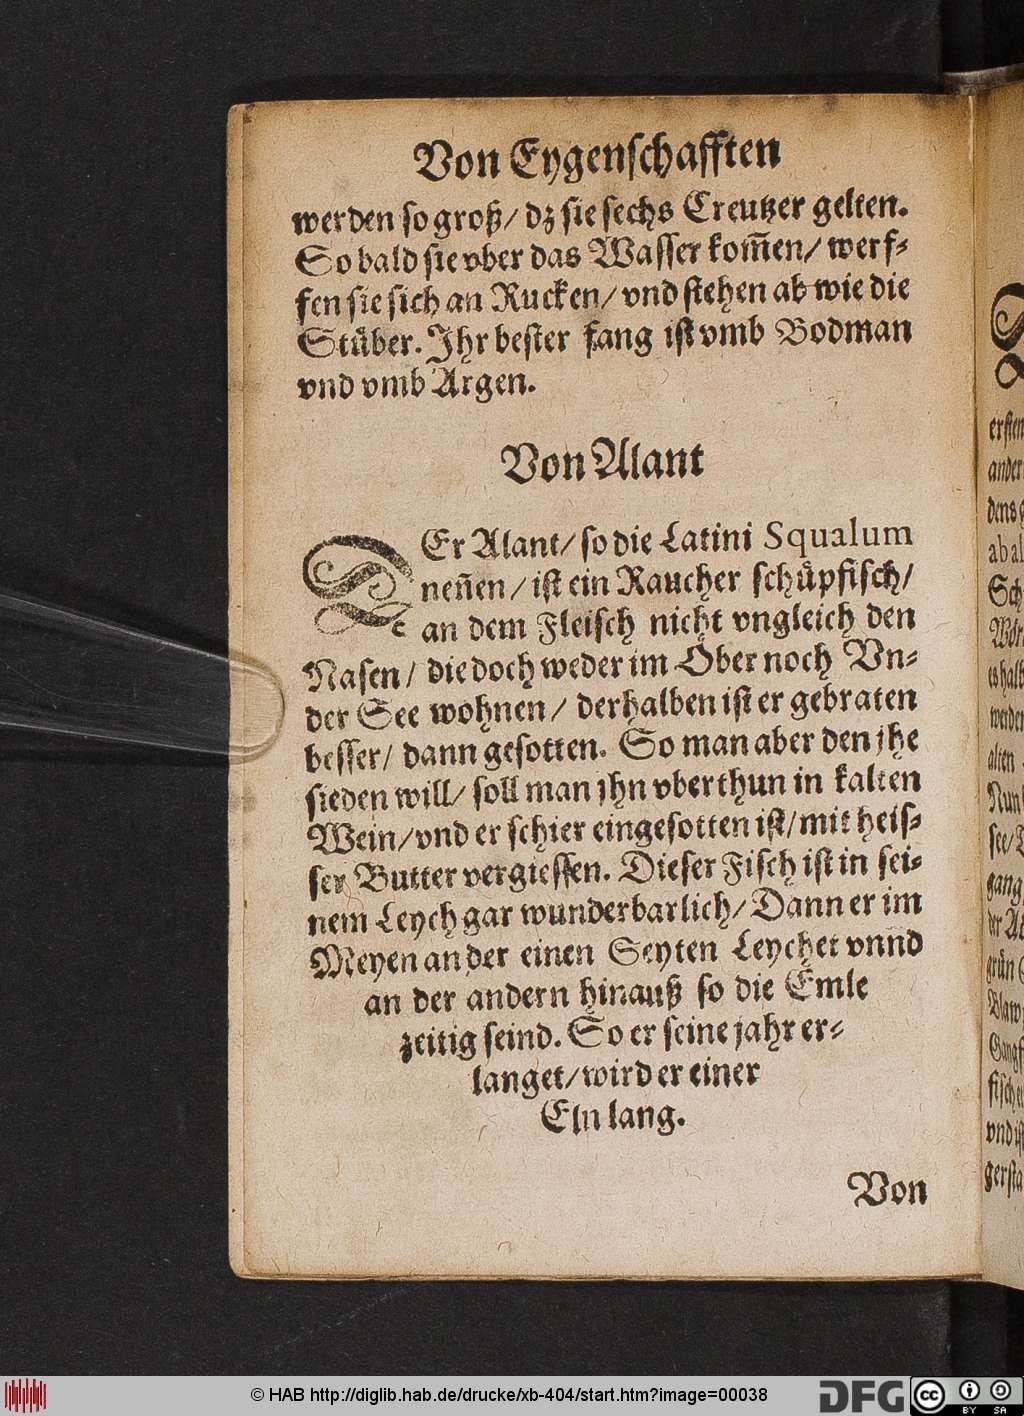 Von Eygenschafften
werden so groß/ dz sie sechs Creutzer gelten.
So bald sie vber das Wasser kom̃en/ werf-
fen sie sich an Rucken/ vnd stehen ab wie die
Stüber. Jhr bester fang ist vmb Bodman
vnd vmb Argen.
Von Alant
DEr Alant/ so die Latini Squalum
neñen/ ist ein Raucher schüpfisch/
an dem Fleisch nicht vngleich den
Nasen/ die doch weder im Ober noch Vn-
der See wohnen/ derhalben ist er gebraten
besser/ dann gesotten. So man aber den jhe
sieden will/ soll man jhn vberthun in kalten
Wein/ vnd er schier eingesotten ist/ mit heis-
ser Butter vergiessen. Dieser Fisch ist in sei-
nem Leych gar wunderbarlich/ Dann er im
Meyen an der einen Seyten Leychet vnnd
an der andern hinauß so die Emle
zeitig seind. So er seine jahr er-
langet/ wird er einer
Eln lang.
Von
ersten
ander
dens
werden
alten
see/
gang
der
grün
vnd
© HAB http://diglib.hab.de/drucke/xb-404/start.htm?image=00038
DFG
cc
BY SA